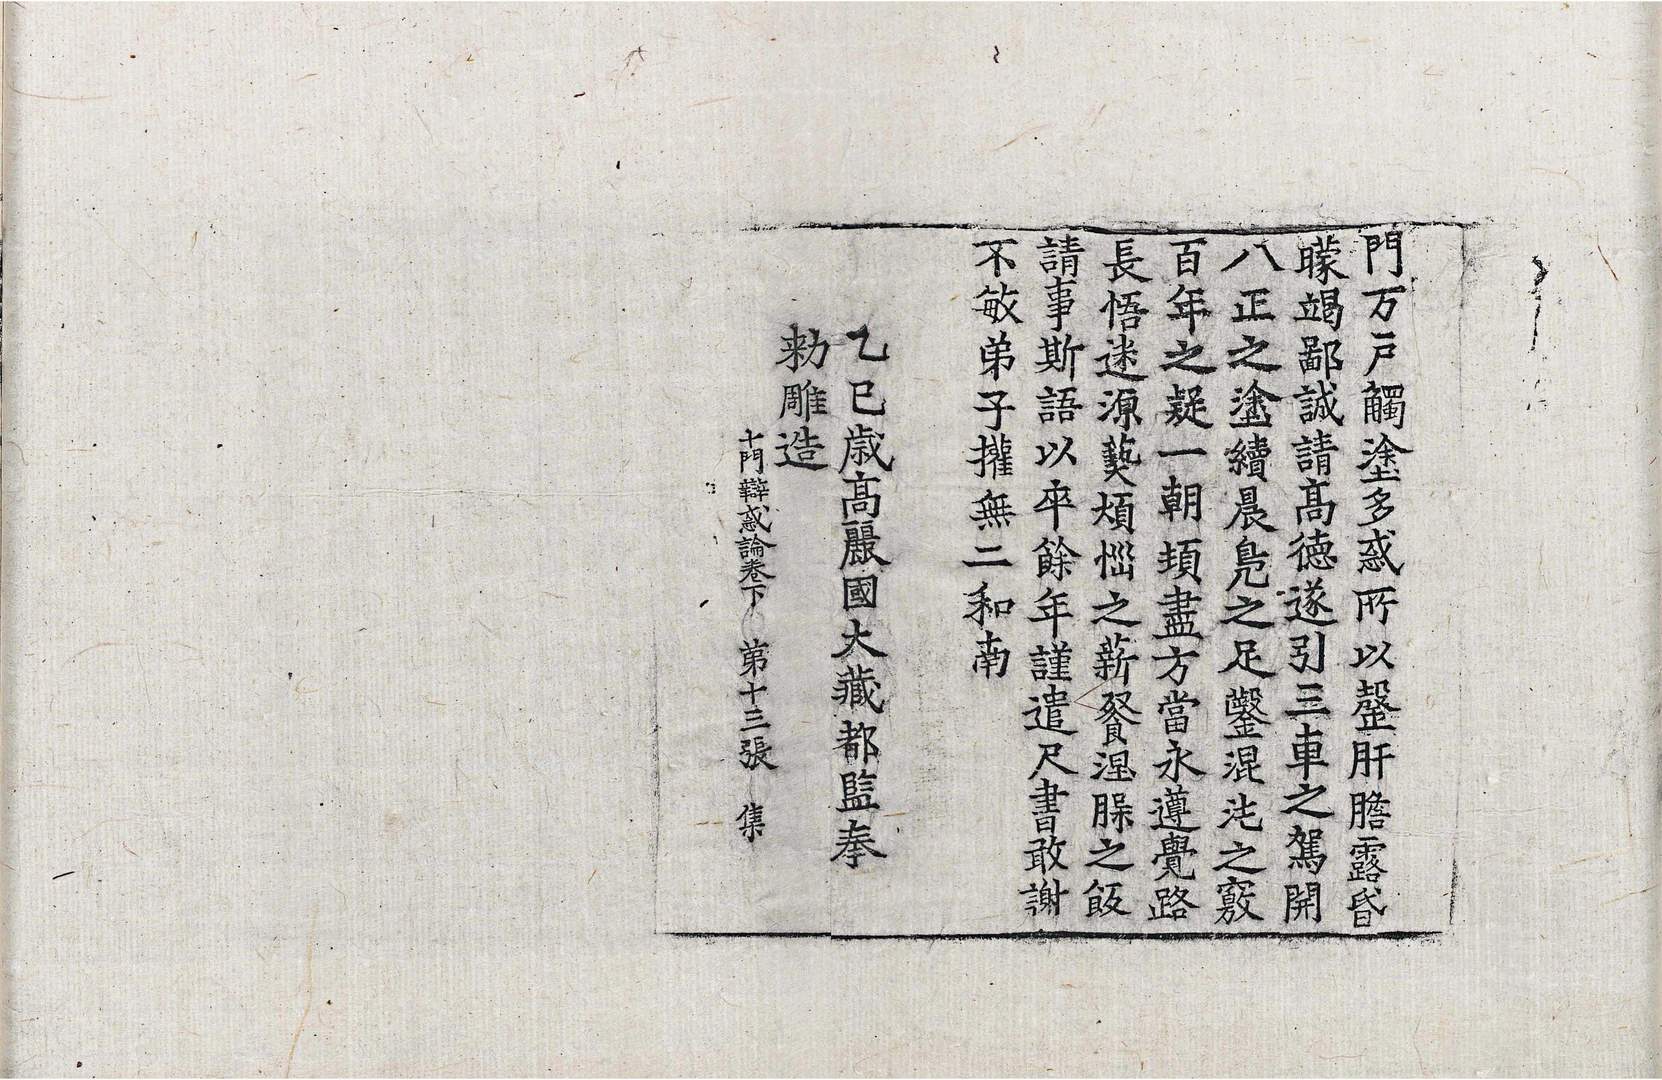 門万戸觸塗多惑所以罄肝膽露昏
矇竭鄙誠請髙德遂引三車之駕開
八正之塗續晨鳬之足鑿混沌之竅
百年之疑一朝頓盡方當永遵覺路
長悟迷源爇煩惱之薪餐涅槃之飯
請事斯語以卒餘年謹遣尺書敢謝
不敏弟子攉無二和南
乙巳歳髙麗國大藏都監奉
勑雕造
十門辯惑論卷下 第十三張 集